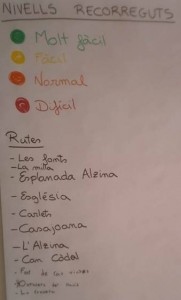 NIVELLS RECORREGUTS
Molt fàcil
Fàcil
Normal
Difícil
Rutes
- Les fonts
- La mina
- Esplanada Alzina
- Església
- Canlet
- Casajoana
- L'Alzina
- Can Còdol
- Pont de les